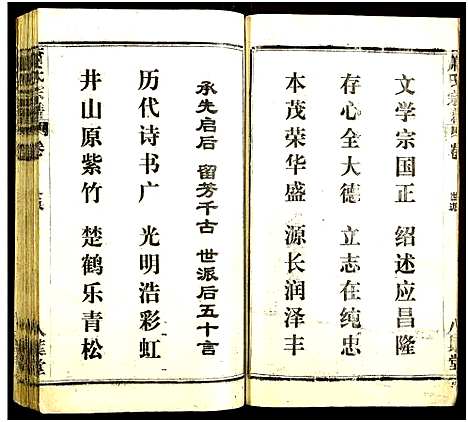 文学宗国正 绍述应昌隆
存心全大德 立志在纯忠
本茂荣华盛 源长润泽丰
承先启后 留芳千古 世派后五十言
历代诗书广 光明浩彩虹
井山原紫竹 楚鹤乐青松